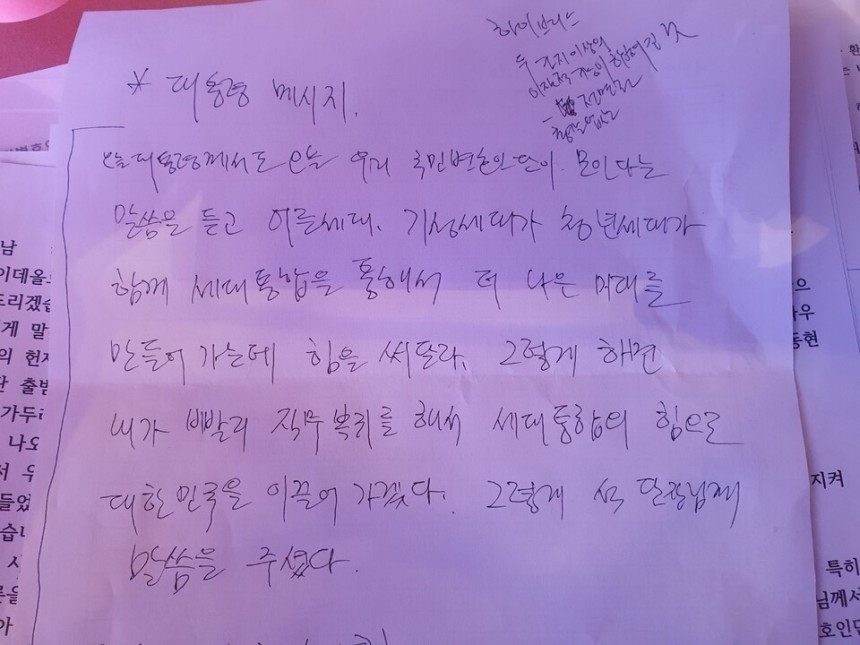 하이브리스
* 대통령 메시지.
오늘 대통령께서도 오늘 우리 국민변호인단이 모인다는
말씀을 듣고 어른세대, 기성세대가 청년세대가
함께 세대통합을 통해서 더 나은 미래를
만들어 가는데 힘을 써달라. 그렇게 하면
내가 빨리 직무 복귀를 해서 세대통합의 힘으로
대한민국을 이끌어 가겠다. 그렇게 석 단장님께
말씀을 주셨다.
남
이데올
드리겠습
게 말
의 헌재
단 출범
가두
나오
서 우
들었
습니
사
아
우
동현
지켜
특히
님께서
호인단